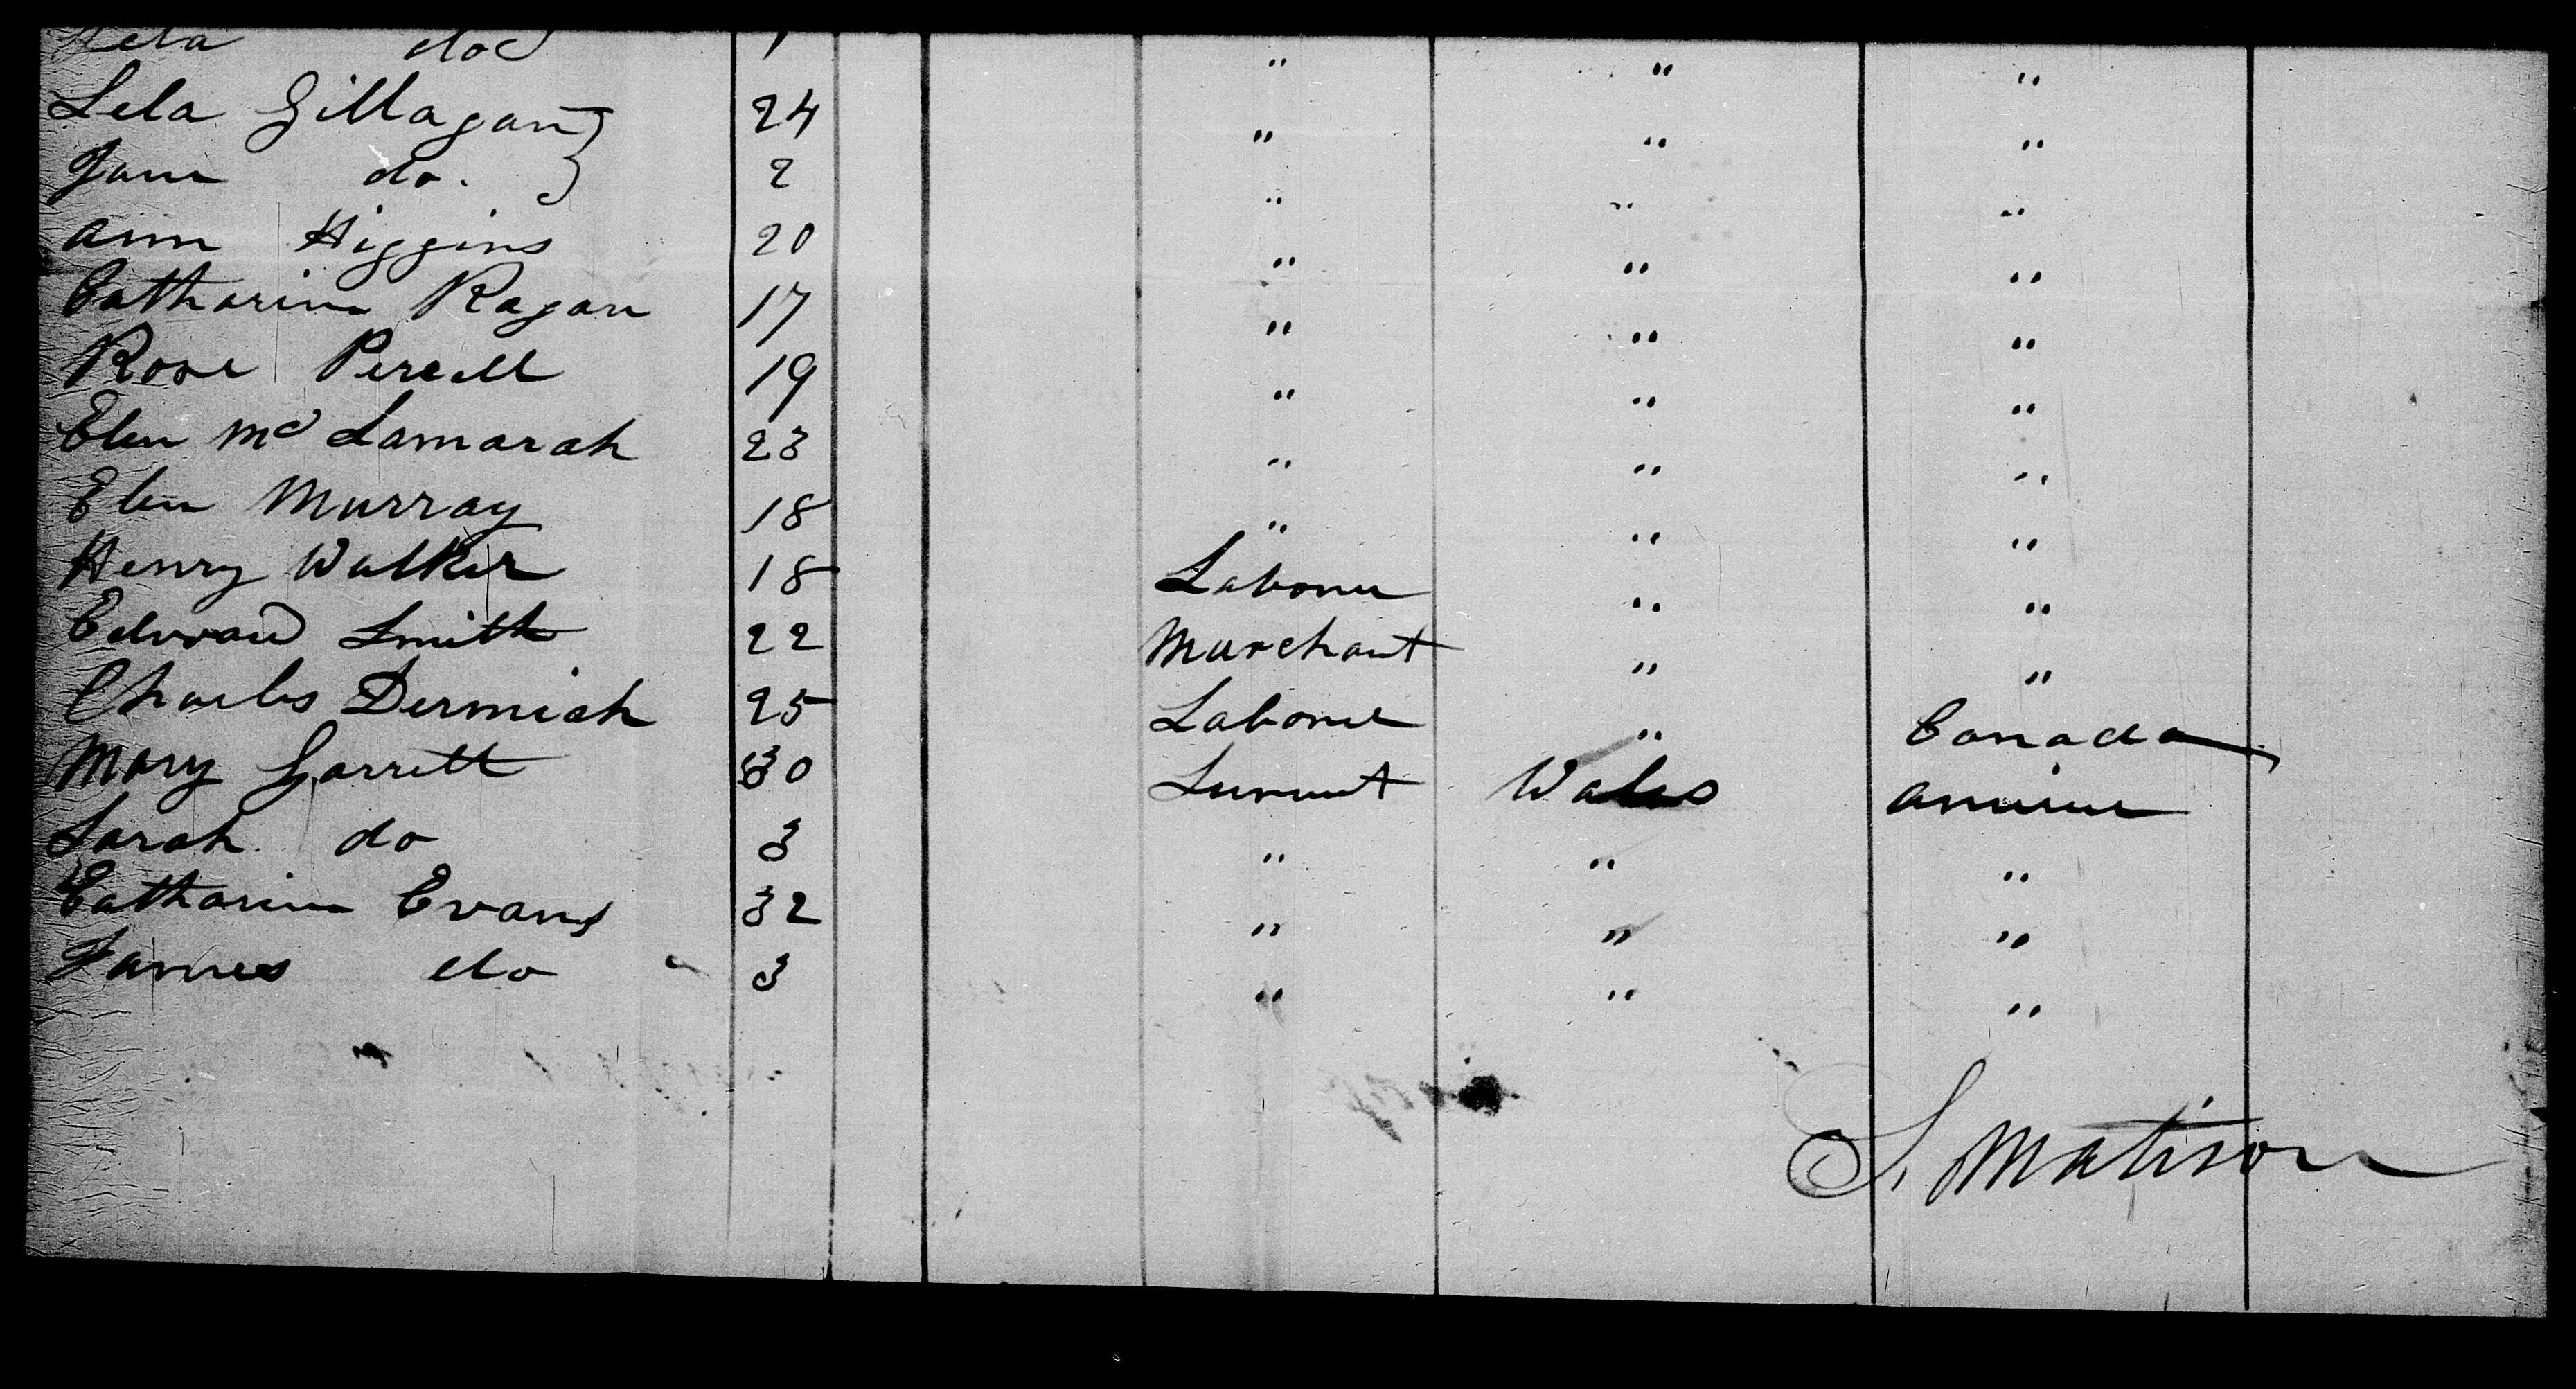 do
Lela Gillagan } 24 " " "
Jane do. } 2 " " "
Ann Higgins 20 " " "
Catharine Ragan 17 " " "
Rose Percell 19 " " "
Elen Mc Lamarah 23 " " "
Elen Murray 18 " " "
Henry Walker 18 Laborer " "
Edward Smith 22 Marchant " "
Charles Dermiah 25 Laborer " Canada
Mary Garrett 30 Survant Wales
Sarah do 3 " " "
Catharine Evans 32 " " "
James do 3 " " "
S. Matison